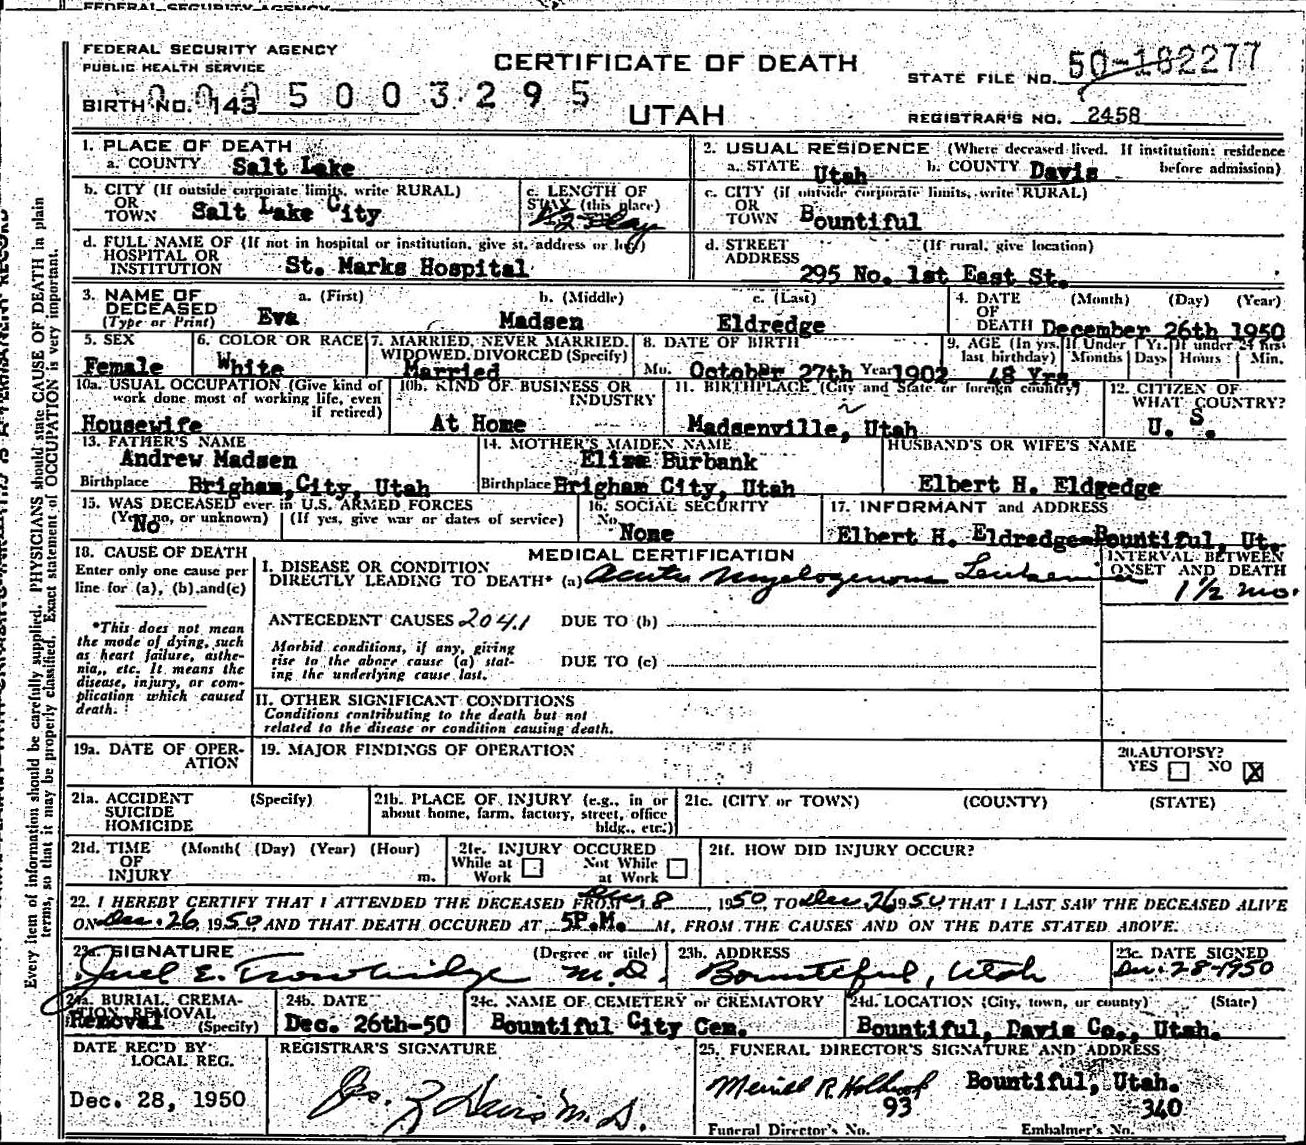 FEDERAL SECURITY AGENCY
FEDERAL SECURITY AGENCY
PUBLIC HEALTH SERVICE
CERTIFICATE OF DEATH
STATE FILE NO. 50-182277
BIRTH NO. 143 0005003295
UTAH
REGISTRAR'S NO. 2458
1. PLACE OF DEATH
a. COUNTY Salt Lake
2. USUAL RESIDENCE (Where deceased lived. If institution: residence before admission)
a. STATE Utah b. COUNTY Davis
b. CITY (If outside corporate limits, write RURAL)
OR
TOWN Salt Lake City
c. LENGTH OF
STAY (this place)
1/2 Day
c. CITY (if outside corporate limits, write RURAL)
OR
TOWN Bountiful
d. FULL NAME OF (If not in hospital or institution, give st. address or loc.)
HOSPITAL OR
INSTITUTION St. Marks Hospital
d. STREET (If rural, give location)
ADDRESS
295 No. 1st East St.
3. NAME OF
DECEASED
(Type or Print)
a. (First) b. (Middle) c. (Last)
Eva Madsen Eldredge
4. DATE (Month) (Day) (Year)
OF
DEATH December 26th 1950
5. SEX
Female
6. COLOR OR RACE
White
7. MARRIED, NEVER MARRIED,
WIDOWED, DIVORCED (Specify)
Married
8. DATE OF BIRTH
Mo. October 27th Year 1902
9. AGE (In yrs. last birthday) If Under 1 Yr. If under 24 hrs.
Months Days Hours Min.
48 Yrs.
10a. USUAL OCCUPATION (Give kind of
work done most of working life, even
if retired)
Housewife
10b. KIND OF BUSINESS OR
INDUSTRY
At Home
11. BIRTHPLACE (City and State or foreign country)
Madsenville, Utah
12. CITIZEN OF
WHAT COUNTRY?
U. S.
13. FATHER'S NAME
Andrew Madsen
Birthplace Brigham City, Utah
14. MOTHER'S MAIDEN NAME
Elize Burbank
Birthplace Brigham City, Utah
HUSBAND'S OR WIFE'S NAME
Elbert H. Eldgedge
15. WAS DECEASED ever in U.S. ARMED FORCES
(Yes, no, or unknown) (If yes, give war or dates of service)
No
16. SOCIAL SECURITY
No.
None
17. INFORMANT and ADDRESS
Elbert H. Eldredge-Bountiful, Ut.
18. CAUSE OF DEATH
Enter only one cause per
line for (a), (b), and (c)
*This does not mean
the mode of dying, such
as heart failure, asthe-
nia, etc. It means the
disease, injury, or com-
plication which caused
death.
MEDICAL CERTIFICATION
I. DISEASE OR CONDITION
DIRECTLY LEADING TO DEATH* (a) Acute Myelogenous Leukemia
INTERVAL BETWEEN
ONSET AND DEATH
1 1/2 mo.
ANTECEDENT CAUSES 204.1 DUE TO (b)
Morbid conditions, if any, giving
rise to the above cause (a) stat-
ing the underlying cause last.
DUE TO (c)
II. OTHER SIGNIFICANT CONDITIONS
Conditions contributing to the death but not
related to the disease or condition causing death.
19a. DATE OF OPER-
ATION
19. MAJOR FINDINGS OF OPERATION
20. AUTOPSY?
YES NO X
21a. ACCIDENT (Specify)
SUICIDE
HOMICIDE
21b. PLACE OF INJURY (e.g., in or
about home, farm, factory, street, office
bldg., etc.)
21c. (CITY or TOWN) (COUNTY) (STATE)
21d. TIME (Month( (Day) (Year) (Hour)
OF
INJURY m.
21e. INJURY OCCURED
While at Work Not While at Work
21f. HOW DID INJURY OCCUR?
22. I HEREBY CERTIFY THAT I ATTENDED THE DECEASED FROM 8, 1950, TO Dec. 26 1950 THAT I LAST SAW THE DECEASED ALIVE
ON Dec. 26, 1950 AND THAT DEATH OCCURED AT 5P.M. M, FROM THE CAUSES AND ON THE DATE STATED ABOVE.
23a. SIGNATURE (Degree or title)
Juel E. Trowbridge M.D.
23b. ADDRESS
Bountiful, Utah
23c. DATE SIGNED
Dec. 28-1950
24a. BURIAL, CREMA-
TION, REMOVAL
(Specify)
Removal
24b. DATE
Dec. 26th-50
24c. NAME OF CEMETERY or CREMATORY
Bountiful City Cem.
24d. LOCATION (City, town, or county) (State)
Bountiful, Davis Co., Utah.
DATE REC'D BY
LOCAL REG.
Dec. 28, 1950
REGISTRAR'S SIGNATURE
M.D.
25. FUNERAL DIRECTOR'S SIGNATURE AND ADDRESS
Merrill R. Holbrook Bountiful, Utah.
93 340
Funeral Director's No. Embalmer's No.
Every item of information should be carefully supplied. PHYSICIANS should state CAUSE OF DEATH in plain
terms, so that it may be properly classified. Exact statement of OCCUPATION is very important.